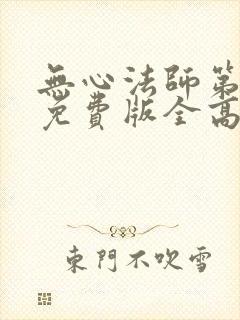 無心法師第
免費版全高
東門不吹雪